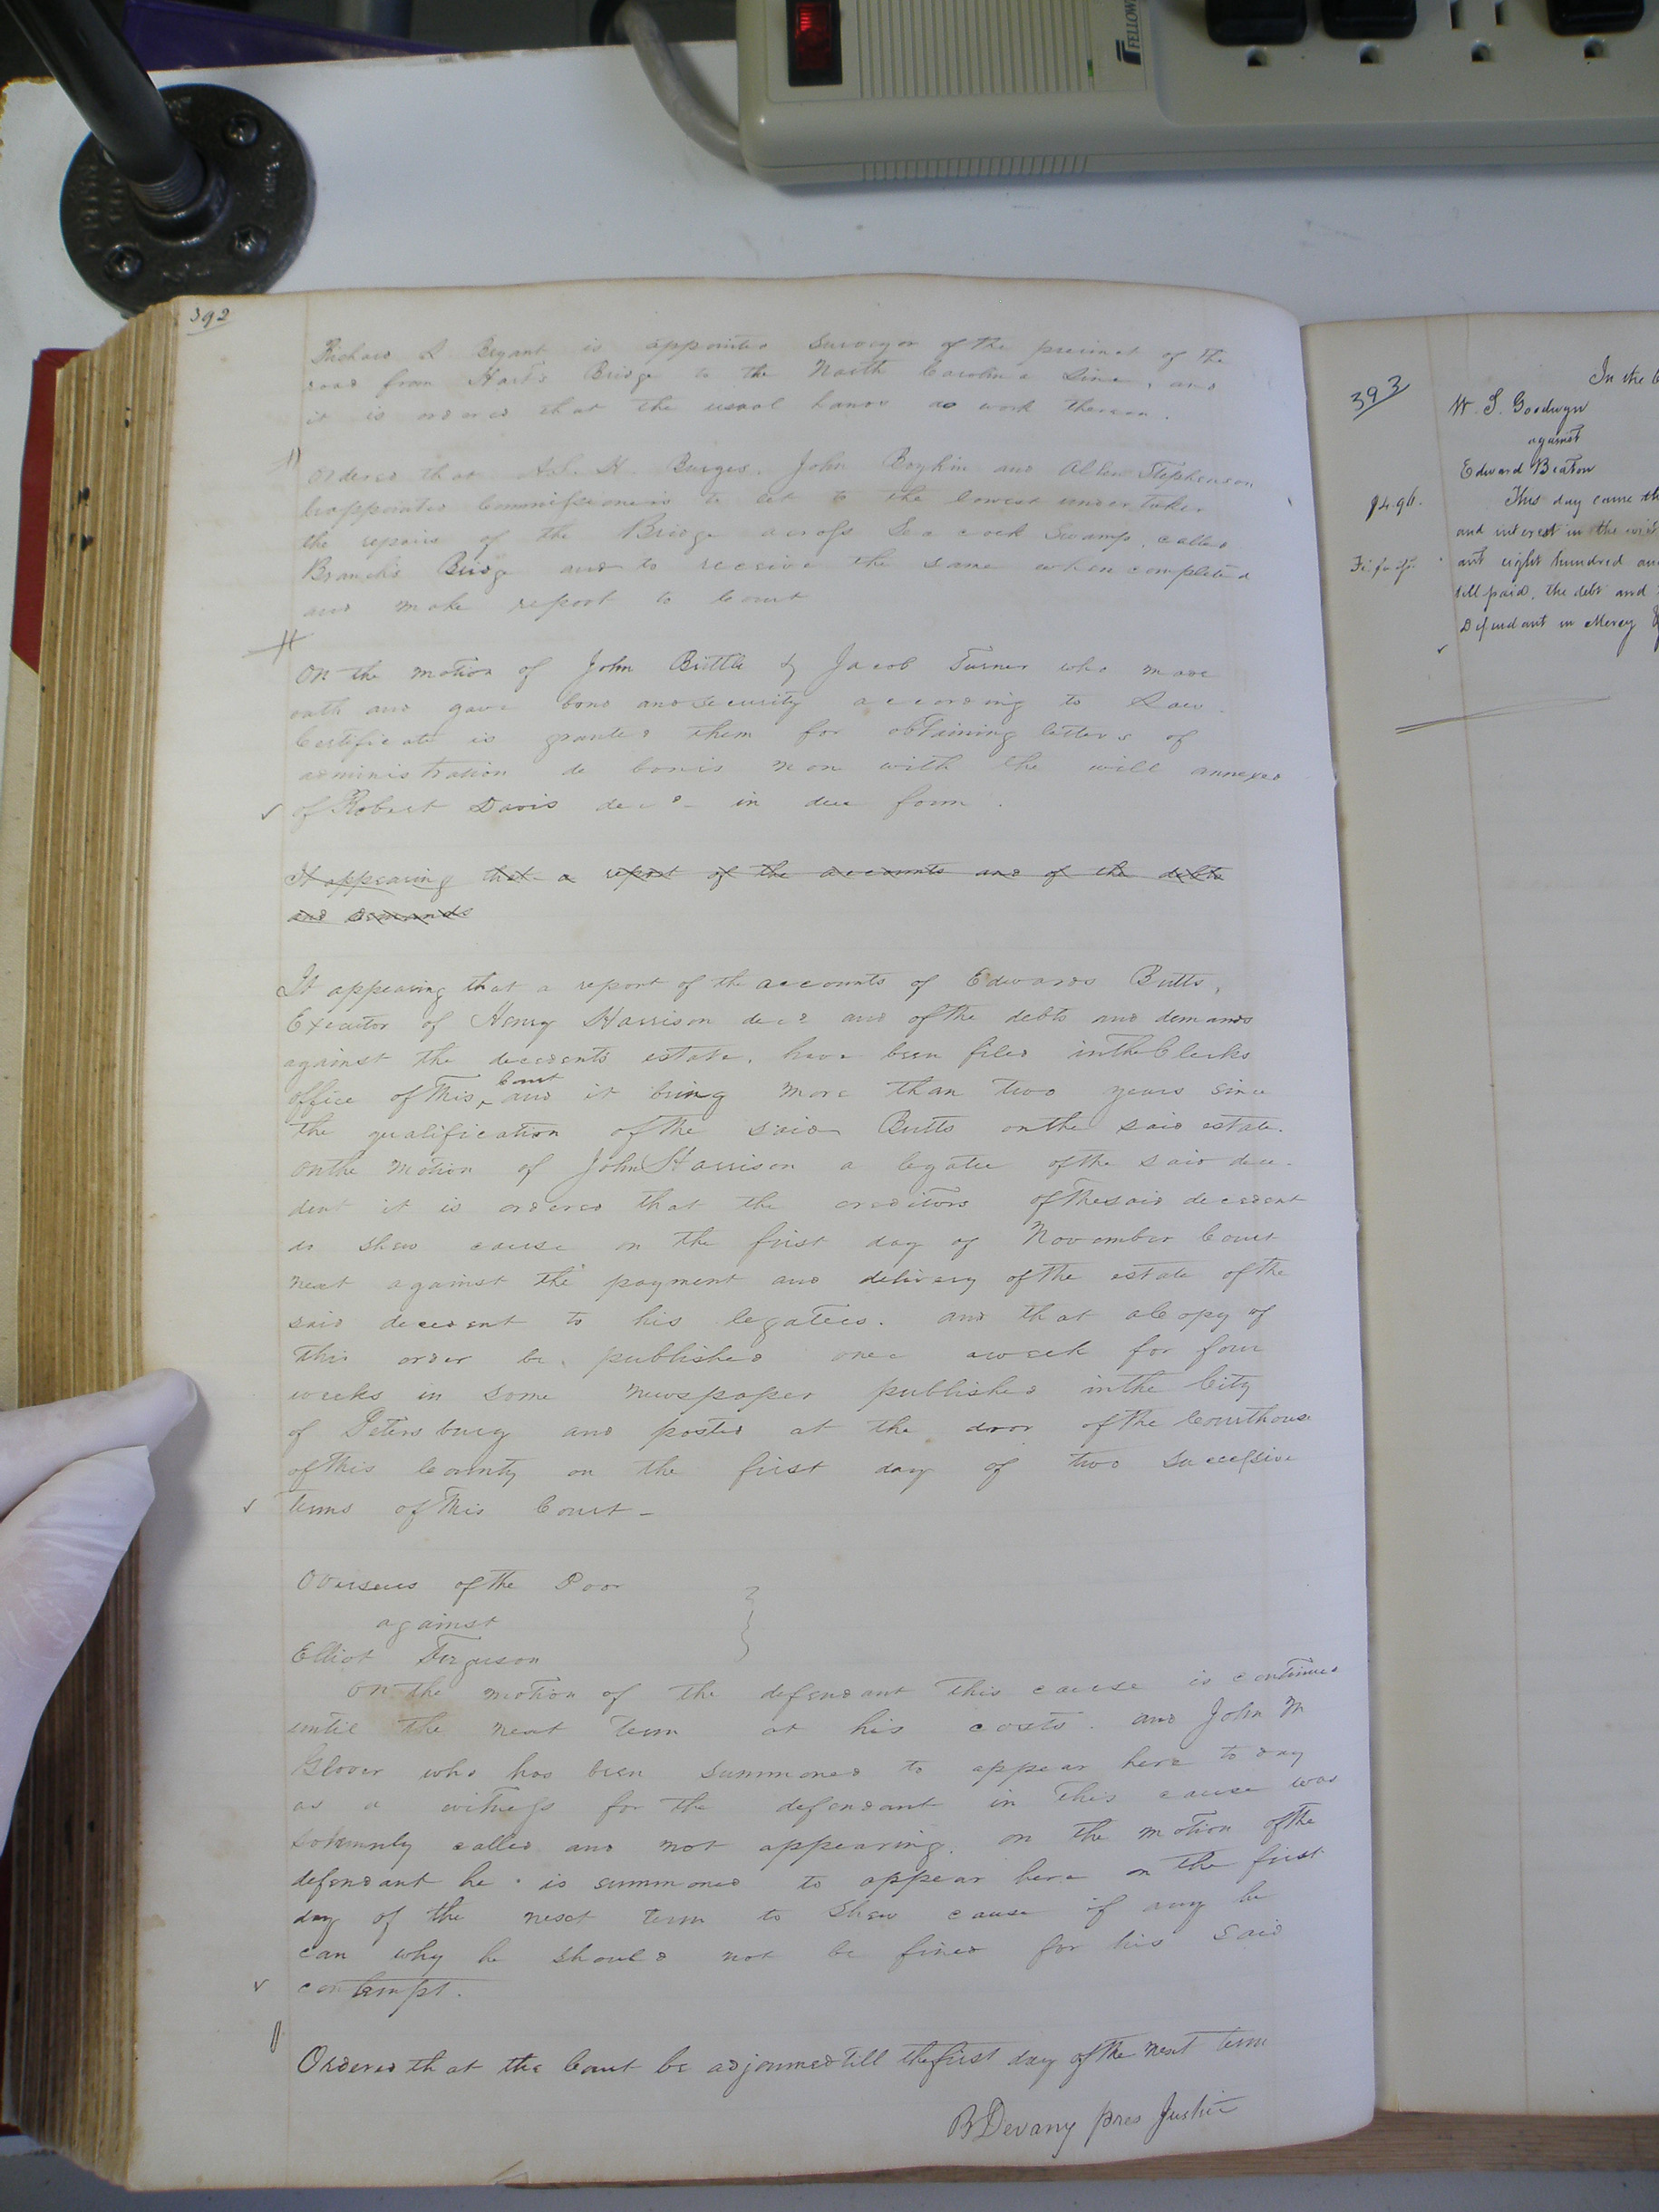 FELLOW
392
Richard L Bryant is appointed Surveyor of the precinct of the
road from Hart's Bridge to the North Carolina Line, and
it is ordered that the usual hands do work thereon.
Ordered that A.S. H. Burges, John Boykin and Allen Stephenson
be appointed Commissioners to let to the lowest undertaker
the repairs of the Bridge across Seacock Swamp, called
Branch's Bridge and to receive the same when completed
and make report to Court
On the motion of John Bittle & Jacob Turner who made
oath and gave bond and security according to Law.
Certificate is granted them for obtaining letters of
administration de bonis non with the will annexed
of Robert Davis decd in due form.
It appearing that a report of the accounts and of the debts
and demands
It appearing that a report of the accounts of Edwards Butts,
Executor of Henry Harrison decd and of the debts and demands
against the decedents estate, have been filed in the Clerks
office of this Court and it being more than two years since
the qualification of the said Butts on the said estate.
On the motion of John Harrison a legatee of the said dece-
dent it is ordered that the creditors of the said decedent
do shew cause on the first day of November Court
next against the payment and delivery of the estate of the
said decedent to his legatees. and that a Copy of
this order be published once a week for four
weeks in some newspaper published in the City
of Petersburg and posted at the door of the Courthouse
of this County on the first day of two successive
terms of this Court -
Overseers of the Poor
against
Elliot Ferguson
On the motion of the defendant this cause is continued
until the next term at his costs. and John M
Glover who has been summoned to appear here to day
as a witness for the defendant in this cause was
solemnly called and not appearing, on the motion of the
defendant he is summoned to appear here on the first
day of the next term to shew cause if any he
can why he should not be fined for his said
contempt.
Ordered that the Court be adjourned till the first day of the next term
B Devany pres Justice
393
In the C
W. S. Goodwyn
against
Edward Beaton
This day came th
and interest in the
ant eight hundred an
till paid, the debt and
Defendant in Mercy &
$4.96.
Fi: fa